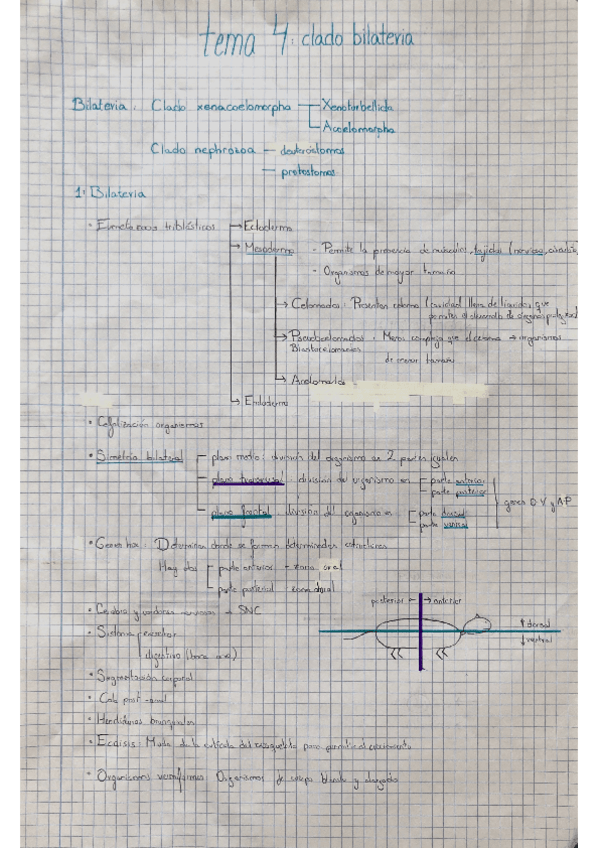 tema 4: clado bilateria
Bilateria: Clado xenacoelomorpha — Xenoturbellida
Acoelomorpha
Clado nephrozoa — deuteróstomos
— protostomos
1. Bilateria
• Eumetazoos triblásticos → Ectodermo
→ Mesodermo - Permite la presencia de músculos, tejidos (nervioso,
- Organismos de mayor tamaño
→ Celomados: Presentan celoma (cavidad llena de líquido, que
permite el desarrollo de órganos
→ Pseudocelomados: Menos complejo que el celoma → organismos
de menor tamaño
→ Acelomados
→ Endodermo
• Cefalización organismos
• Simetría bilateral — plano medio: división del organismo en 2 partes iguales
— plano transversal: división del organismo en — parte anterior
— parte posterior
genes DV y AP
— plano frontal: división del organismo en — parte dorsal
parte ventral
• Genes hox: Determinan donde se forman determinadas estructuras
Hay dos — parte anterior - zona oral
parte posterior
posterior ← → anterior
• Cerebro y cordones nerviosos → SNC
↑ dorsal
↓ ventral
• Sistema excretor
digestivo (boca, ano)
• Segmentación corporal
• Cola post-anal
• Hendiduras branquiales
• Ecdisis: Muda de la cutícula del exoesqueleto para permitir el crecimiento
• Organismos vermiformes: Organismos de cuerpo blando y alargado